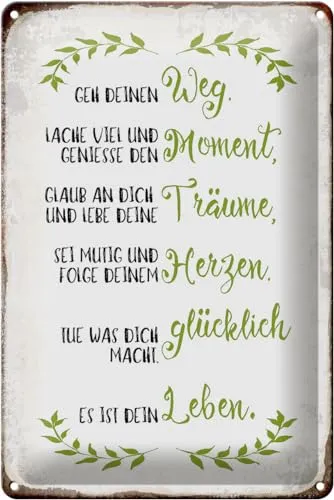 GEH DEINEN Weg.
LACHE VIEL UND
GENIESSE DEN Moment,
GLAUB AN DICH
UND LEBE DEINE Träume,
SEI MUTIG UND
FOLGE DEINEM Herzen.
TUE WAS DICH glücklich
MACHT.
ES IST DEIN Leben.